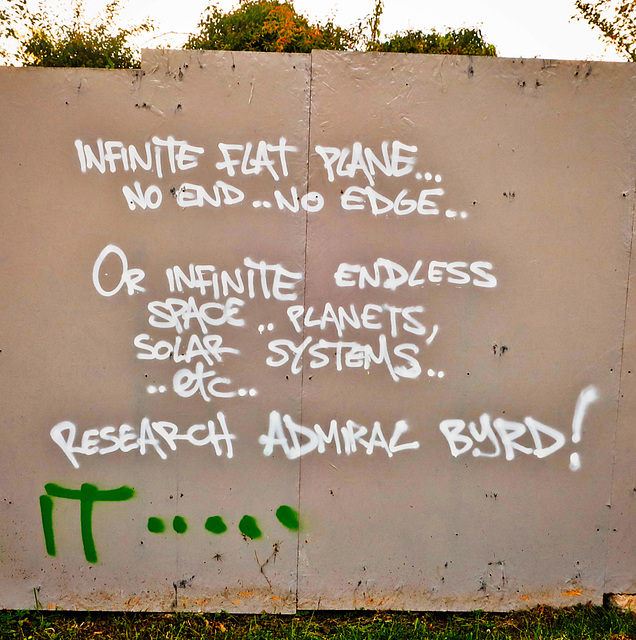 INFINITE FLAT PLANE...
NO END..NO EDGE..
OR INFINITE ENDLESS
SPACE .. PLANETS,
SOLAR SYSTEMS..
..etc..
RESEARCH ADMIRAL BYRD!
IT.....